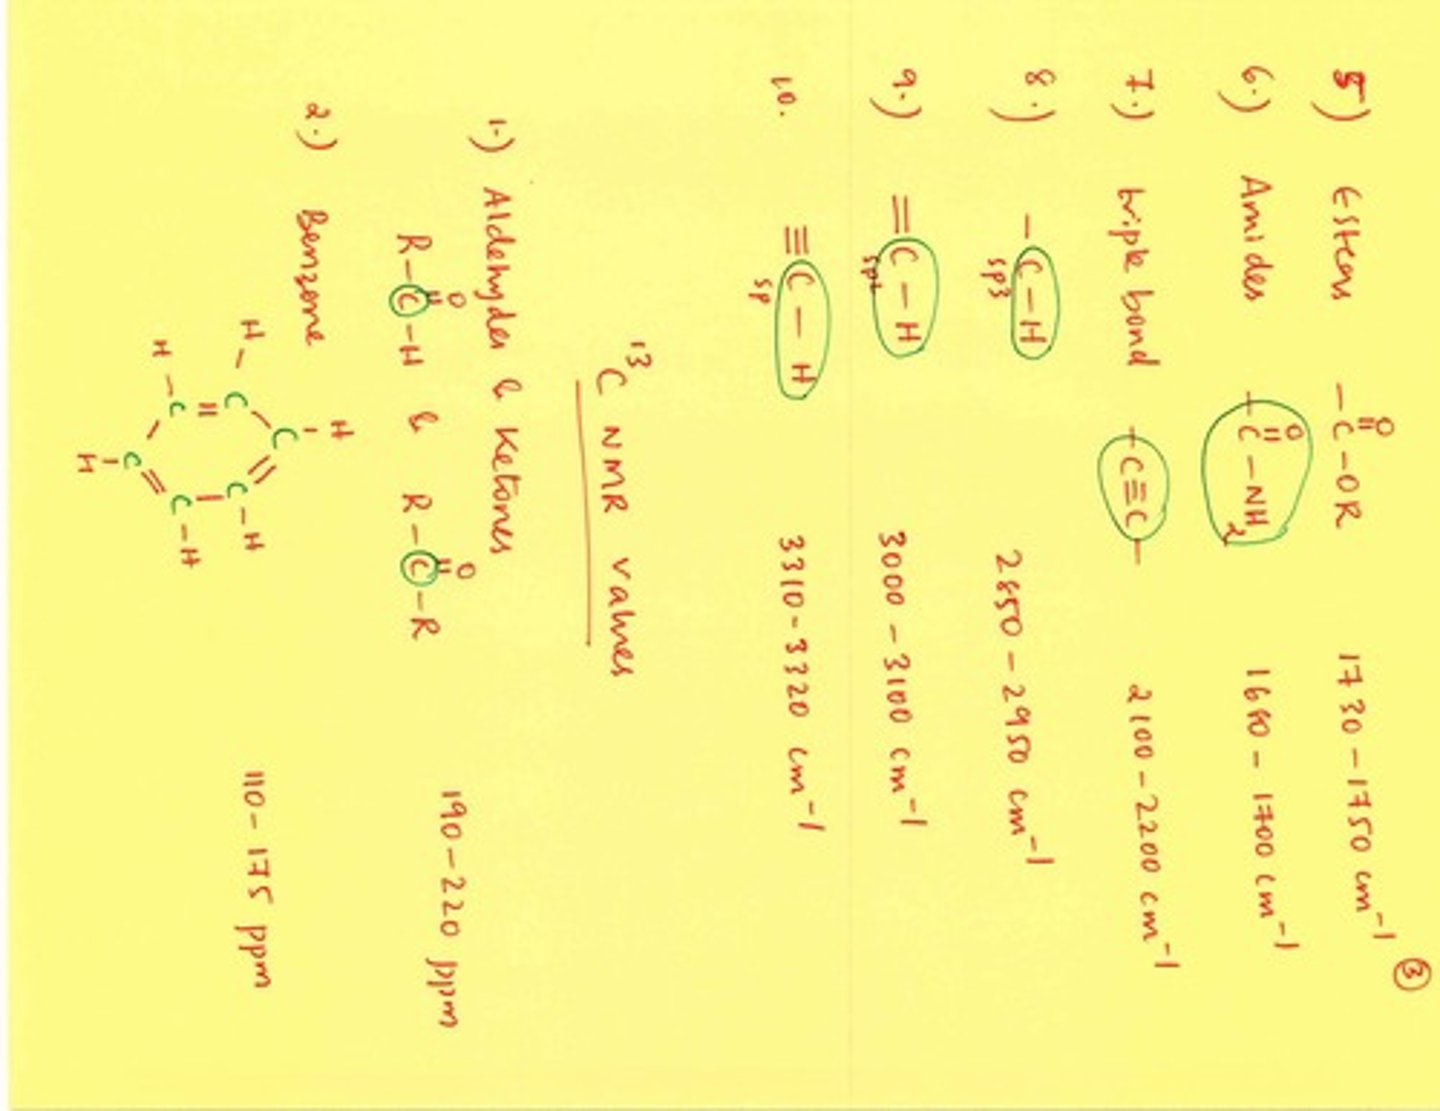 ③
5) Esters -C-OR 1730-1750 cm⁻¹
O
6.) Amides -C-NH₂ 1660-1700 cm⁻¹
O
7.) triple bond -C≡C- 2100-2200 cm⁻¹
8.) -C-H 2850-2950 cm⁻¹
sp3
9.) =C-H 3000-3100 cm⁻¹
sp2
10. ≡C-H 3310-3320 cm⁻¹
sp
¹³C NMR values
1.) Aldehydes & Ketones
O O
R-C-H & R-C-R 190-220 ppm
2.) Benzene
H C H
H C C H 110-175 ppm
H C C H
C
H